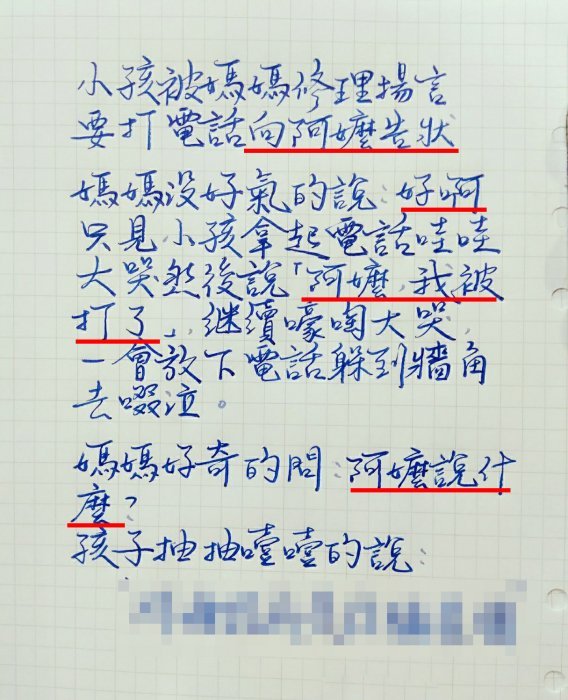 小孩被媽媽修理揚言
要打電話向阿嬤告狀
媽媽沒好氣的說:好啊
只見小孩拿起電話哇哇
大哭然後說「阿嬤,我被
打了」,継續嚎啕大哭,
一會放下電話躲到牆角
去啜泣。
媽媽好奇的問:阿嬤說什
麼?
孩子抽抽噎噎的說: